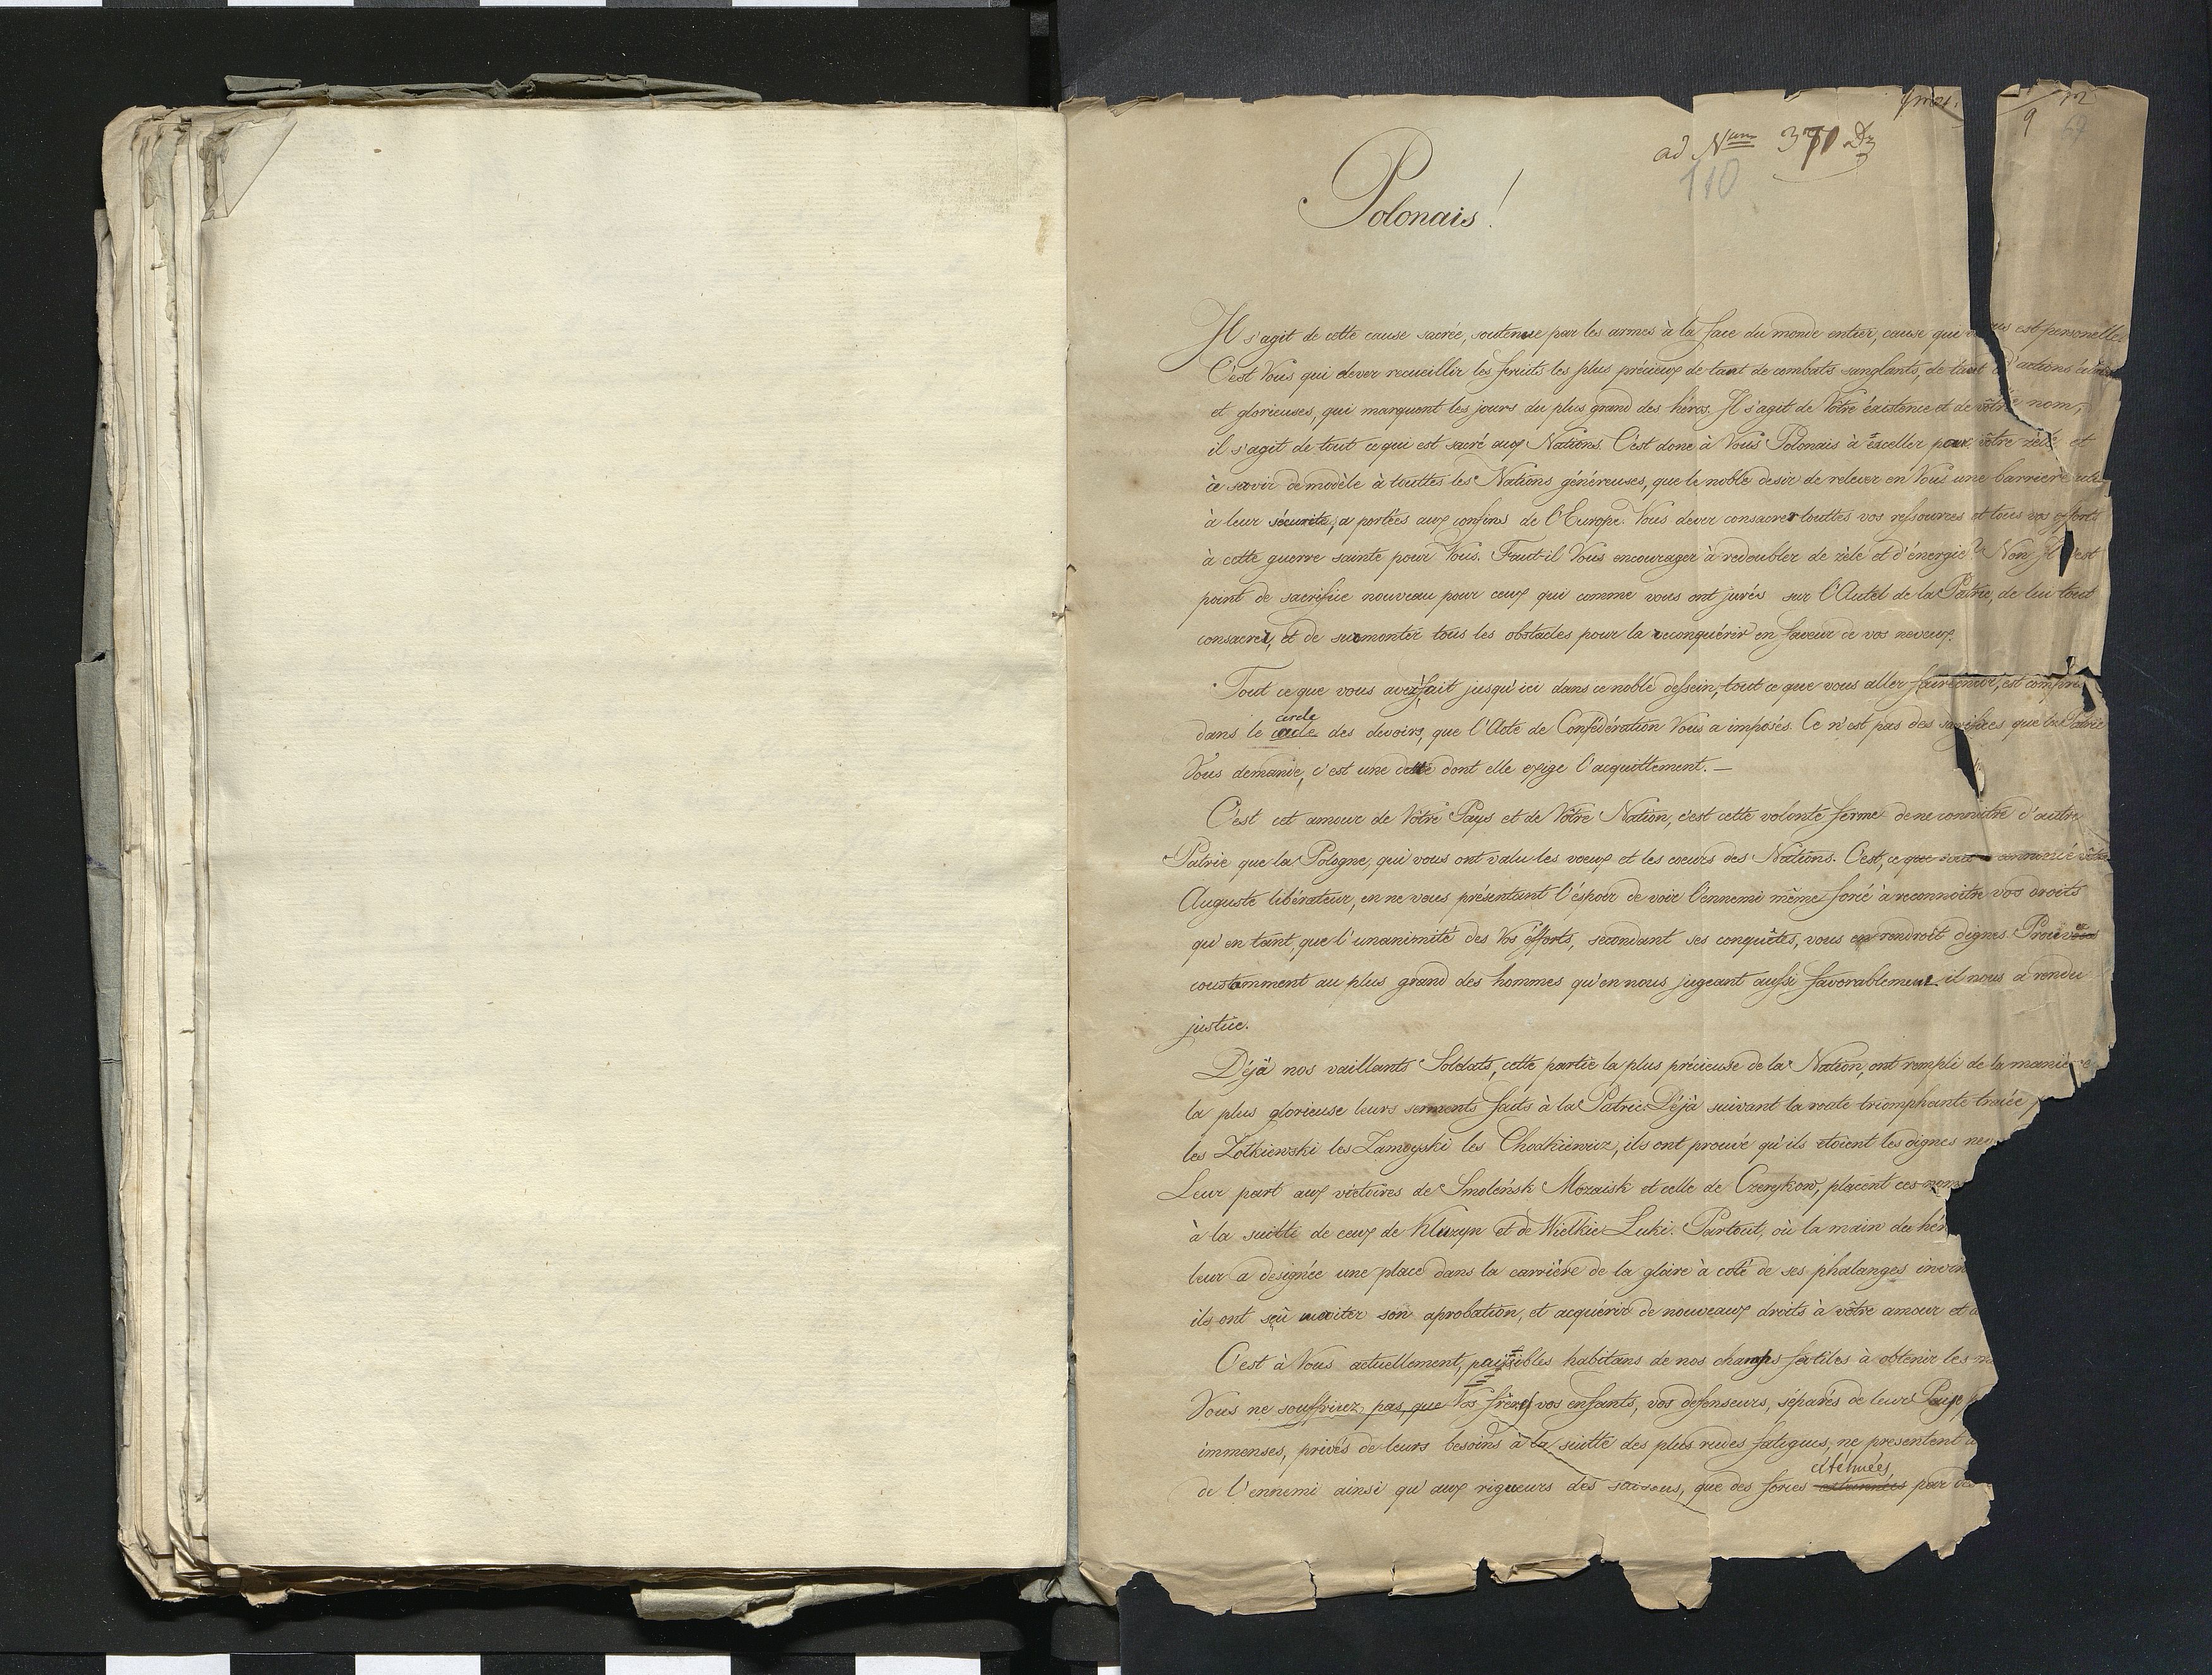 pres.
9
ad Num 370
110
Polonais!
Il s'agit de cette cause sacrée, soutenue par les armes à la face du monde entier, cause que est personelle
C'est Vous qui devez recueillir les fruits les plus précieux de tant de combats sanglants, de tant d'actions
et glorieuses, qui marquent les jours du plus grand des héros. Il s'agit de Vôtre éxistence et de vôtre nom,
il s'agit de tout ce qui est sacré aux Nations. C'est donc à Vous Polonais à exceller par vôtre zèle et
à servir de modèle à touttes les Nations généreuses, que le noble desir de relever en Vous une barrière
à leur sécurité, a portées aux confins de l'Europe. Vous devez consacrer touttes vos ressources et tous vos efforts
à cette guerre sainte pour Vous. Faut-il Vous encourager à redoubler de zèle et d'énergie? Non Il est
point de sacrifice nouveau pour ceux qui comme vous ont jurés sur l'Autel de la Patrie, de lui tout
consacrer, et de surmonter tous les obstacles pour la reconquérir en faveur de vos neveux.
Tout ce que vous avez fait jusqu'ici dans ce noble dessein, tout ce que vous aller faire, est compris
dans le cercle des devoirs, que l'Acte de Confédération Vous a imposés. Ce n'est pas des sacrifices que la Patrie
Vous demande, c'est une dette dont elle exige l'acquittement. —
C'est cet amour de Vôtre Pays et de Vôtre Nation, c'est cette volonté ferme de ne connoitre d'autre
Patrie que la Pologne, qui vous ont valu les voeux et les coeurs des Nations. C'est, ce que vous a annoncé vôtre
Auguste libérateur, en ne vous présentant l'éspoir de voir l'ennemi même forcé à reconnoitre vos droits
qu'en tant, que l'unanimité des Vos éfforts, secondant ses conquêtes, vous en rendroit dignes. Prouvez
constamment au plus grand des hommes qu'en nous jugeant aussi favorablement il nous a rendu
justice.
Déjà nos vaillants Soldats, cette partie la plus précieuse de la Nation, ont rempli de la manière
la plus glorieuse leurs serments faits à la Patrie. Déjà suivant la route triomphante tracée
les Zołkiewski les Zamoyski les Chodkiewicz, ils ont prouvé qu'ils etoient les dignes
Leur part aux victoires de Smoleńsk Mozaisk et celle de Czerykow, placent ces noms
à la suitte de ceux de Kluzyn et de Wielkie Luki. Partout, où la main du
leur a designée une place dans la carrière de la gloire à coté de ses phalanges
ils ont sçu meriter son aprobation, et acquérir de nouveaux droits à vôtre amour et
C'est à Vous actuellement, paisibles habitans de nos champs fertiles à obtenir les
Vous ne souffrirez pas, que Vos frères vos enfants, vos defenseurs, séparés de leurs Pays
immenses, privés de leurs besoins à la suitte des plus rudes fatigues, ne presentent
de l'ennemi ainsi qu'aux rigueurs des saisons, que des forces éténuées par